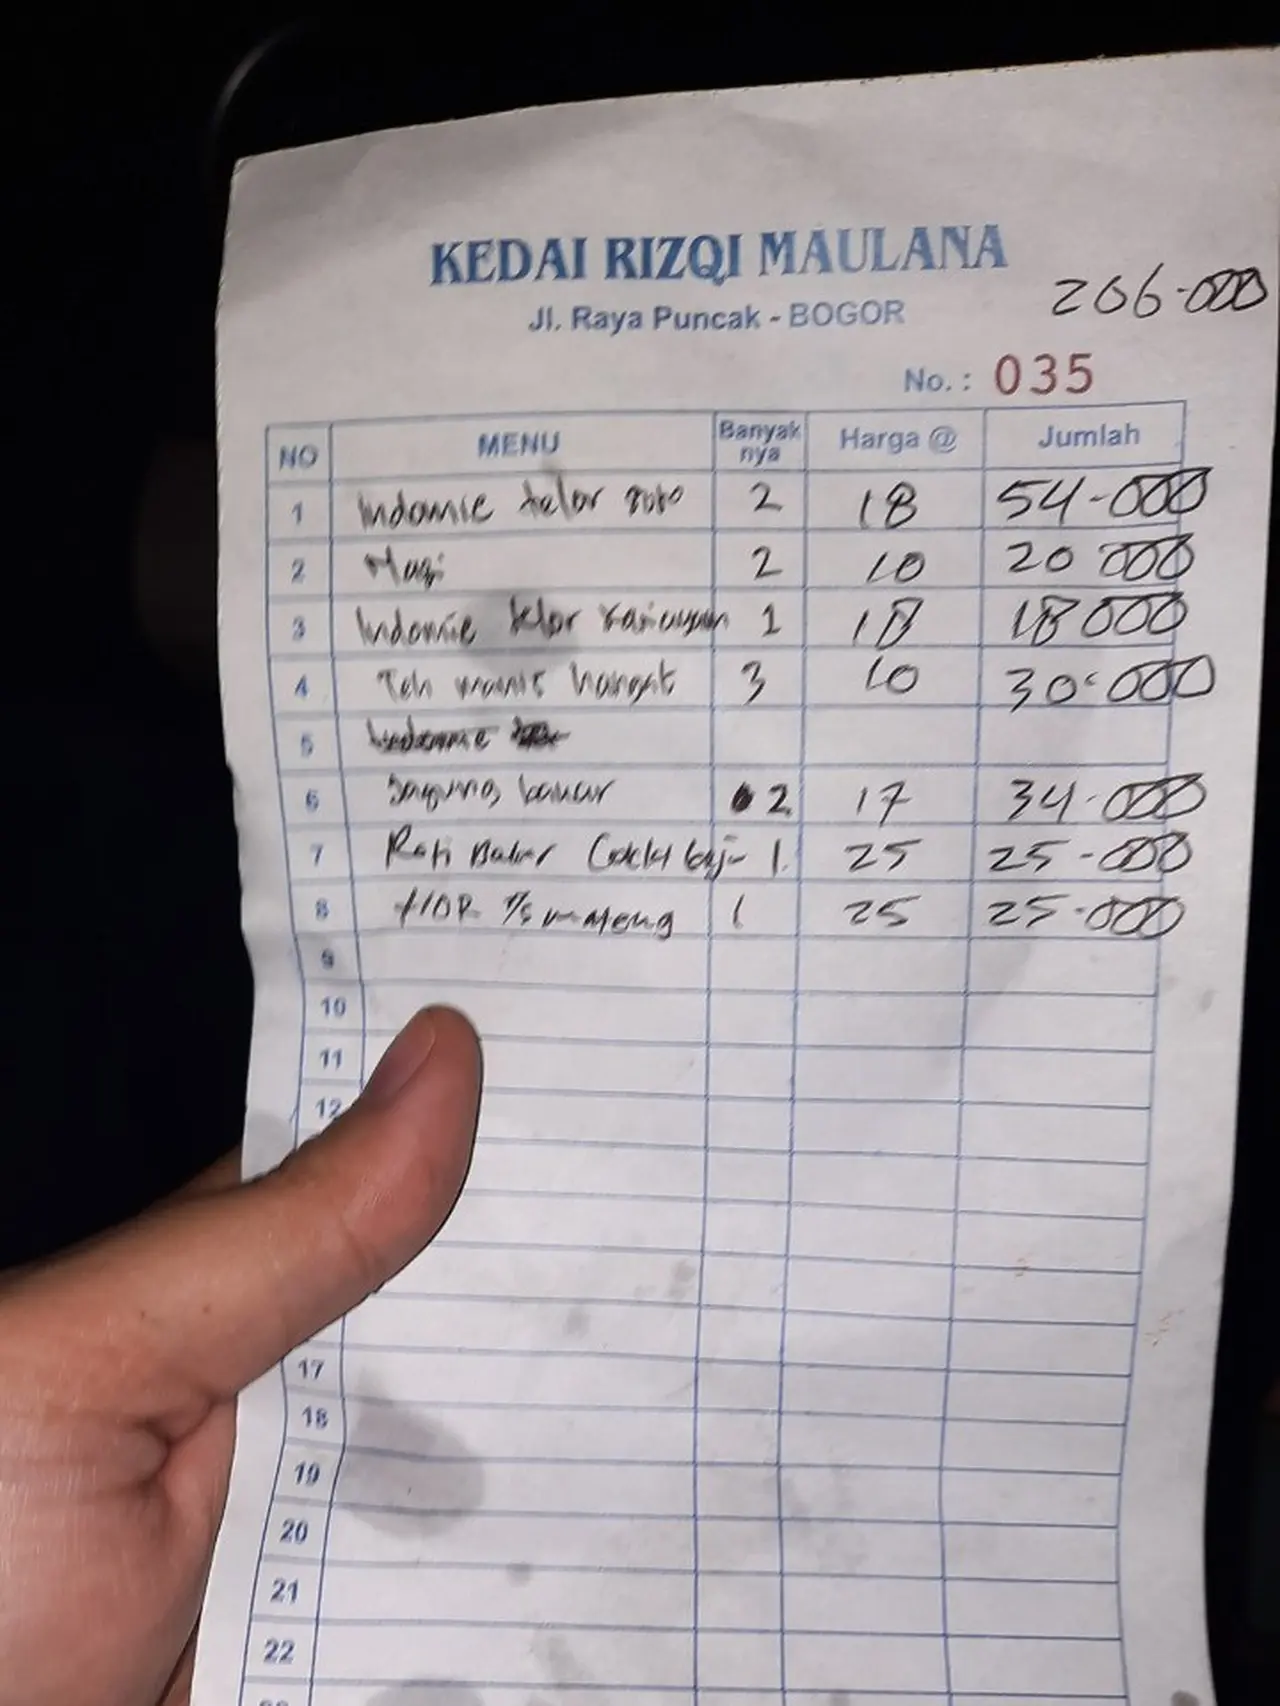 KEDAI RIZQI MAULANA
Jl. Raya Puncak - BOGOR
206.000
No. : 035
NO MENU Banyak nya Harga @ Jumlah
1 Indomie telor soto 2 18 54-000
2 Nasi 2 10 20 000
3 Indomie telor 1 18 18 000
4 Teh manis hangat 3 10 30.000
5 Indomie
6 Jagung bakar 2 17 34.000
7 Roti Bakar Coklat keju 1 25 25-000
8 1 25 25-000
9
10
11
12
17
18
19
20
21
22